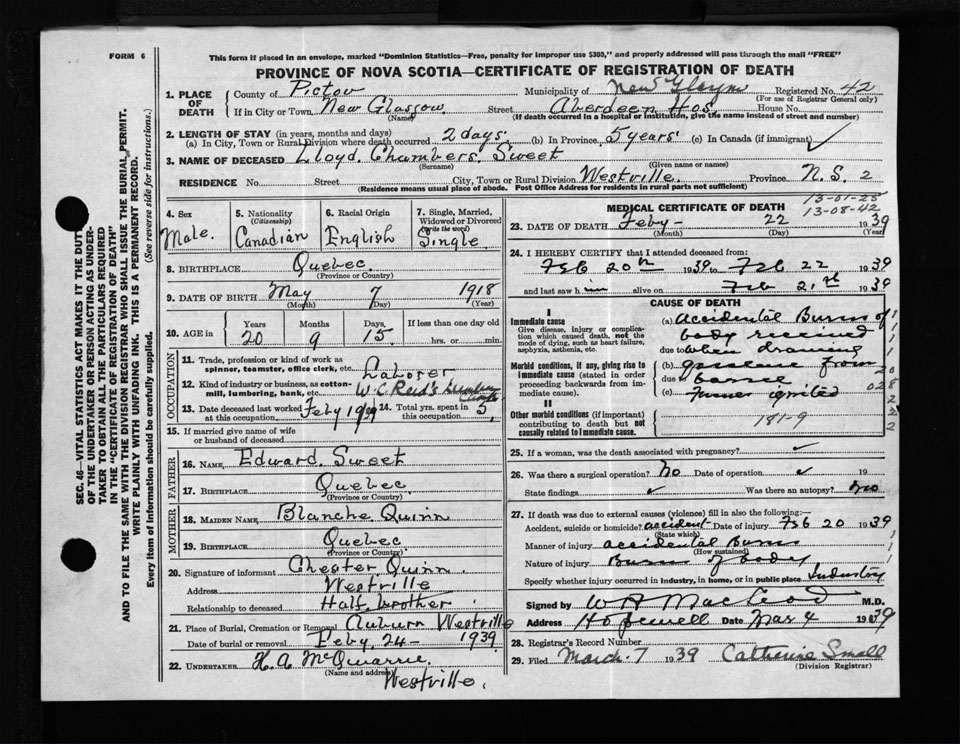 FORM 6
This form if placed in an envelope, marked "Dominion Statistics—Free, penalty for improper use $300," and properly addressed will pass through the mail "FREE"
PROVINCE OF NOVA SCOTIA—CERTIFICATE OF REGISTRATION OF DEATH
1. PLACE OF DEATH
County of Pictou Municipality of New Glasgow Registered No. 42
(For use of Registrar General only)
If in City or Town New Glasgow Street Aberdeen Hos. House No.
(Name) (If death occurred in a hospital or institution, give the name instead of street and number)
2. LENGTH OF STAY (in years, months and days)
(a) In City, Town or Rural Division where death occurred 2 days. (b) In Province, 5 years. (c) In Canada (if immigrant) ✓
3. NAME OF DECEASED Lloyd. Chambers. Sweet
(Surname) (Given name or names)
RESIDENCE No. Street City, Town or Rural Division Westville. Province N.S. 2
(Residence means usual place of abode. Post Office Address for residents in rural parts not sufficient)
13-01-25
13-08-42
4. Sex Male.
5. Nationality (Citizenship) Canadian
6. Racial Origin English
7. Single, Married, Widowed or Divorced (Write the word) Single.
8. BIRTHPLACE Quebec.
(Province or Country)
9. DATE OF BIRTH May 7 1918
(Month) (Day) (Year)
10. AGE in Years 20 Months 9 Days 15 If less than one day old hrs. or min.
OCCUPATION
11. Trade, profession or kind of work as spinner, teamster, office clerk, etc. Laborer
12. Kind of industry or business, as cotton-mill, lumbering, bank, etc. W. C. Reid's Lumber
13. Date deceased last worked at this occupation. Feby 1939 14. Total yrs. spent in this occupation. 5
15. If married give name of wife or husband of deceased
FATHER
16. NAME, Edward. Sweet
17. BIRTHPLACE Quebec.
(Province or Country)
MOTHER
18. MAIDEN NAME Blanche Quinn
19. BIRTHPLACE Quebec
(Province or Country)
20. Signature of informant Chester Quinn
Address Westville
Relationship to deceased Half brother.
21. Place of Burial, Cremation or Removal Auburn Westville
Date of burial or removal Feby, 24 - 1939
22. UNDERTAKER H. A. McQuarrie.
(Name and address)
Westville.
MEDICAL CERTIFICATE OF DEATH
23. DATE OF DEATH Feby- 22 1939
(Month) (Day) (Year)
24. I HEREBY CERTIFY that I attended deceased from
Feb 20th 1939 to Feb 22 1939
and last saw him alive on Feb 21st 1939
CAUSE OF DEATH
I
Immediate cause
Give disease, injury or complication which caused death, not the mode of dying, such as heart failure, asphyxia, asthenia, etc.
Morbid conditions, if any, giving rise to immediate cause (stated in order proceeding backwards from immediate cause).
(a) Accidental Burns of
body received
due to when draining
(b) gasolene from
due to barrel
(c) Fumes ignited
II
Other morbid conditions (if important) contributing to death but not causally related to immediate cause.
181-9
25. If a woman, was the death associated with pregnancy? ✓
26. Was there a surgical operation? No Date of operation ✓ 19
State findings ✓ Was there an autopsy? no
27. If death was due to external causes (violence) fill in also the following:—
Accident, suicide or homicide? accident Date of injury Feb 20 1939
(State which)
Manner of injury accidental Burns
(How sustained)
Nature of injury Burns of body
Specify whether injury occurred in industry, in home, or in public place Industry
Signed by W A MacLeod M.D.
Address Hopewell Date Mar 4 1939
28. Registrar's Record Number
29. Filed March-7 1939 Catherine Small
(Division Registrar)
SEC. 46—VITAL STATISTICS ACT MAKES IT THE DUTY
OF THE UNDERTAKER OR PERSON ACTING AS UNDER-
TAKER TO OBTAIN ALL THE PARTICULARS REQUIRED
IN THE "CERTIFICATE OF REGISTRATION OF DEATH"
AND TO FILE THE SAME WITH THE DIVISION REGISTRAR WHO SHALL ISSUE THE BURIAL PERMIT.
WRITE PLAINLY WITH UNFADING INK. THIS IS A PERMANENT RECORD.
Every item of information should be carefully supplied. (See reverse side for instructions.)